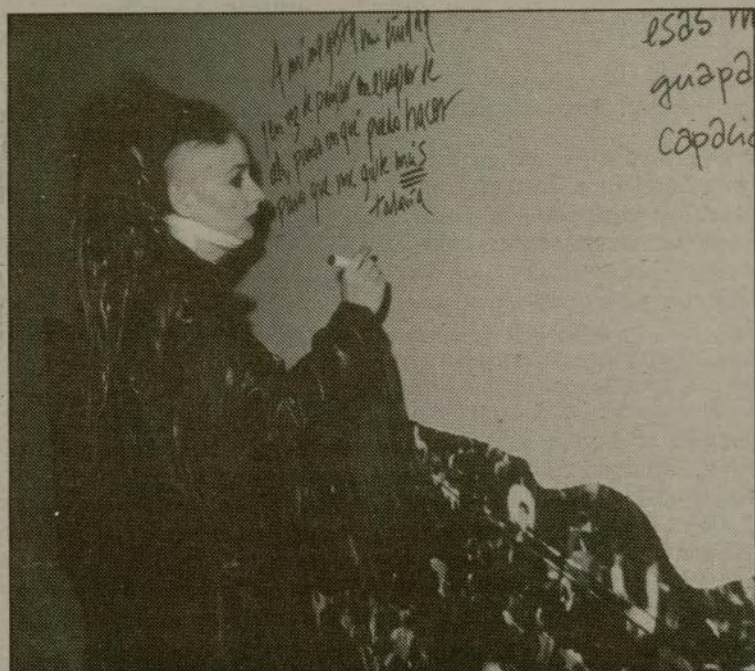 A mí me gusta mi ciudad
y en vez de pensar en escapar de
ella, pienso en qué puedo hacer
para que me guste más
todavía
esas m
guapa
capacid